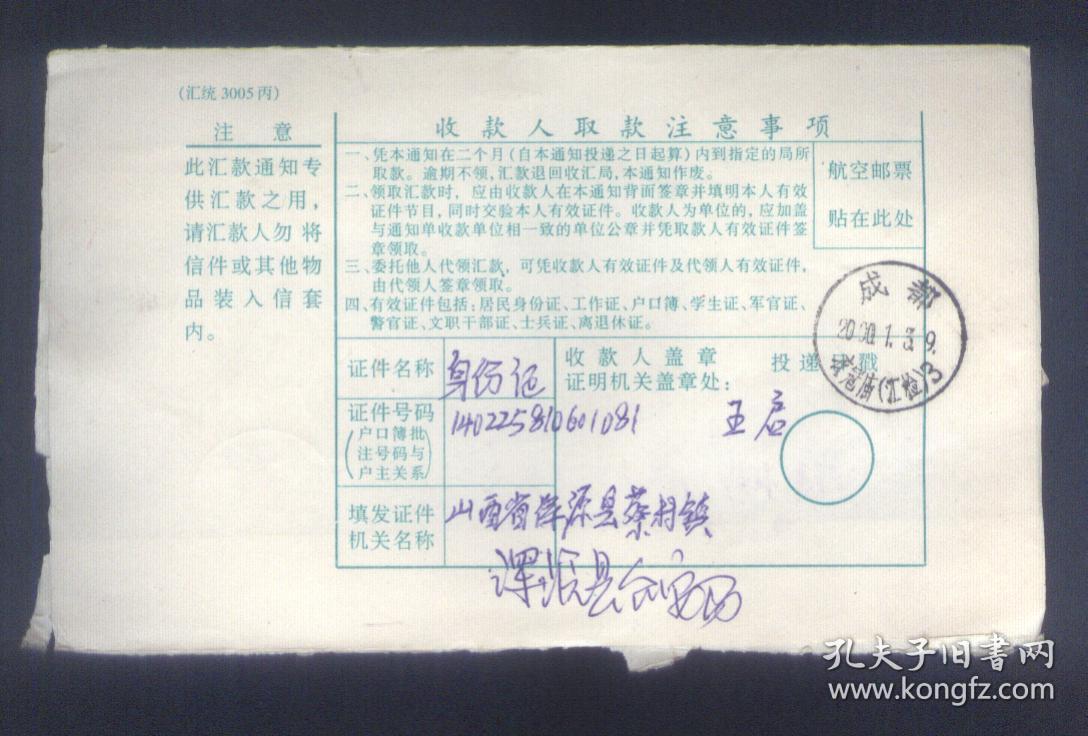 (汇统 3005 丙)
注 意
此汇款通知专
供汇款之用，
请汇款人勿将
信件或其他物
品装入信套
内。
收款人取款注意事项
一、凭本通知在二个月(自本通知投递之日起算)内到指定的局所
取款。逾期不领，汇款退回收汇局，本通知作废。
二、领取汇款时，应由收款人在本通知背面签章并填明本人有效
证件节目，同时交验本人有效证件。收款人为单位的，应加盖
与通知单收款单位相一致的单位公章并凭取款人有效证件签
章领取。
三、委托他人代领汇款，可凭收款人有效证件及代领人有效证件，
由代领人签章领取。
四、有效证件包括：居民身份证、工作证、户口簿、学生证、军官证、
警官证、文职干部证、士兵证、离退休证。
航空邮票
贴在此处
成都
证件名称
身份证
收款人盖章
证明机关盖章处：
投递日戳
证件号码
(户口簿批
注号码与
户主关系)
140225810601081
王启
填发证件
机关名称
山西省浑源县蔡村镇
浑源县公安局
孔夫子旧書网
www.kongfz.com